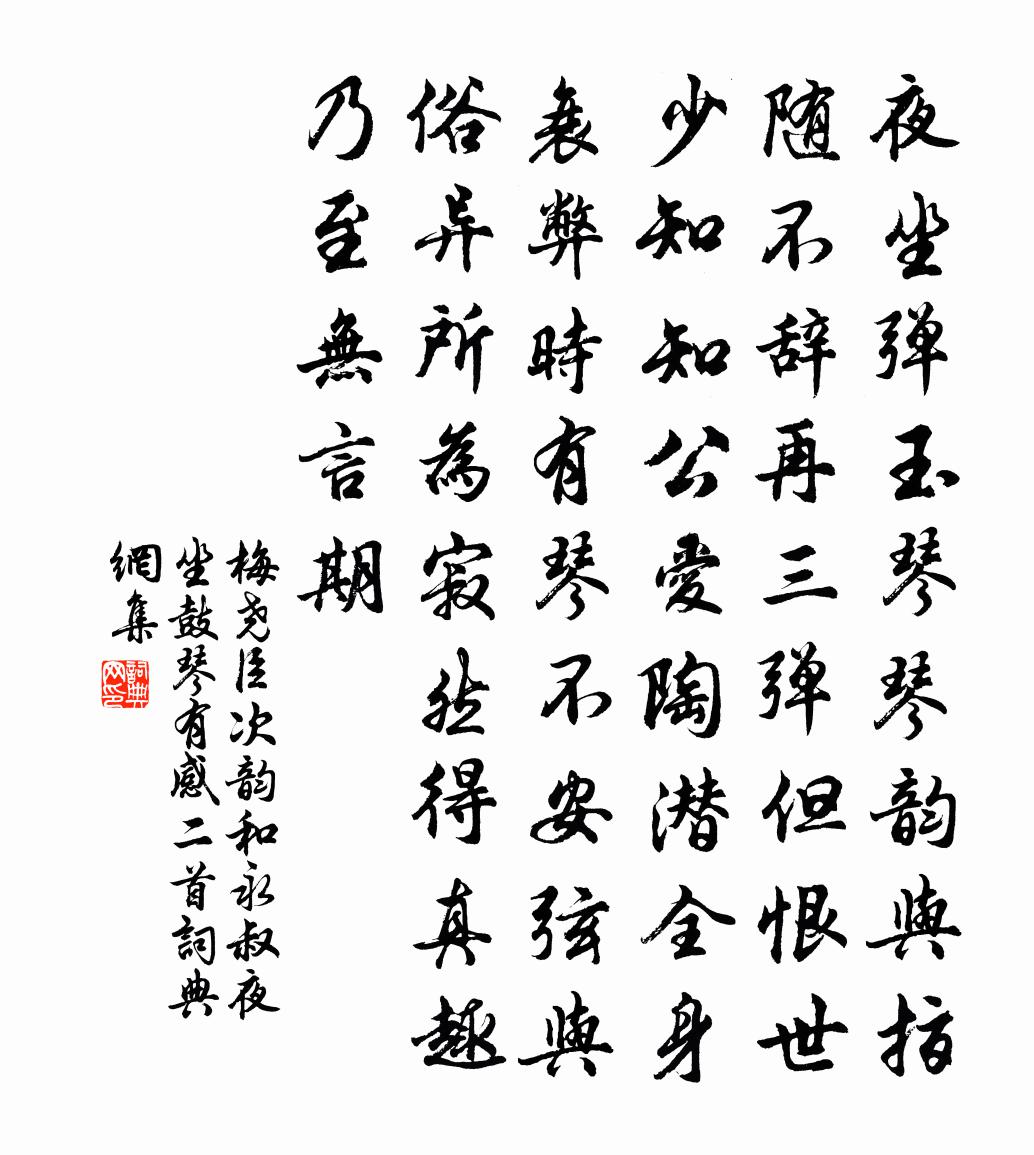 夜坐弹玉琴琴韵與指
随不辞再三弹但恨世
少知知公愛陶潜全身
衰弊時有琴不安弦與
俗异所為寂然得真趣
乃至無言期
梅尧臣次韵和永叔夜
坐鼓琴有感二首詞典
網集
詞典网印